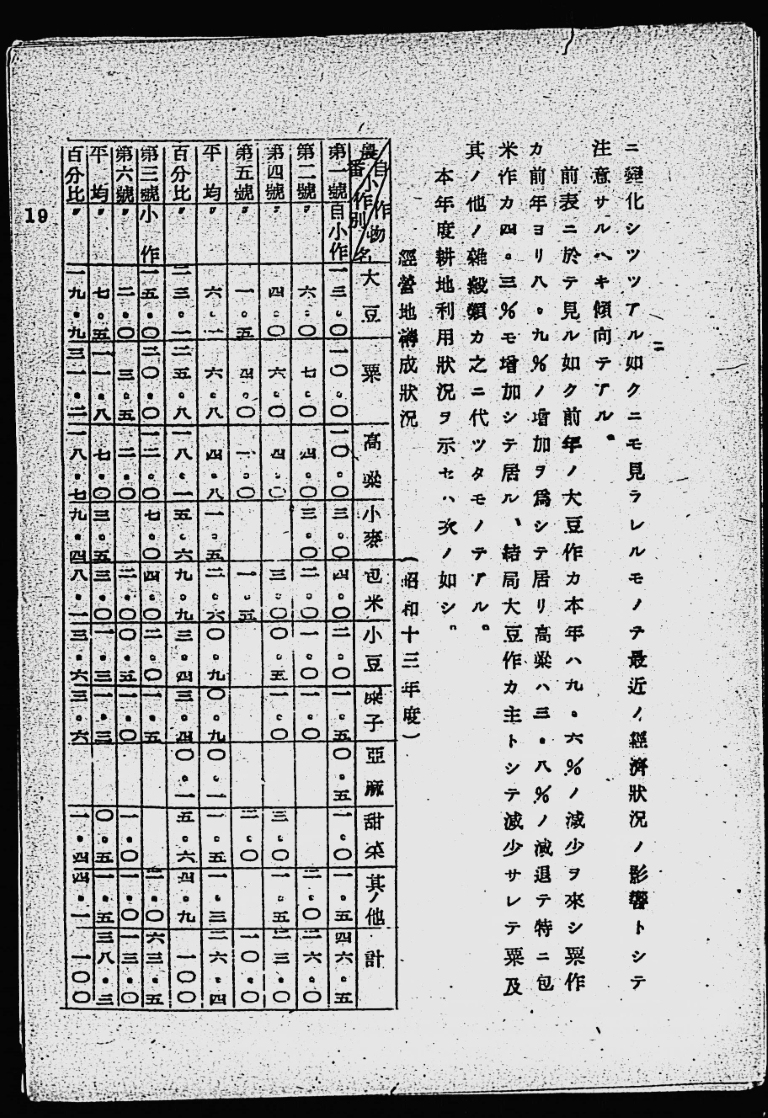 ニ變化シツツアル如クニモ見ラレルモノテ最近ノ經濟狀況ノ影響トシテ
注意サルヘキ傾向テアル。
前表ニ於テ見ル如ク前年ノ大豆作カ本年ハ九・六%ノ減少ヲ來シ粟作
カ前年ヨリ八・九%ノ增加ヲ爲シテ居リ高粱ハ三・八%ノ減退テ特ニ包
米作カ四・三%モ增加シテ居ル、結局大豆作カ主トシテ減少サレテ粟及
其ノ他ノ雜穀類カ之ニ代ツタモノテアル。
本年度耕地利用狀況ヲ示セハ次ノ如シ。
經營地構成狀況 (昭和十三年度)
農番 自小作別 作物名 大豆 粟 高粱 小麥 包米 小豆 蘇子 亞麻 甜菜 其ノ他 計
第一號 自小作 一三・〇 一〇・〇 一〇・〇 三・〇 四・〇 二・〇 一・五 〇・五 一・〇 一・五 四六・五
第二號 〃 六・〇 七・〇 四・〇 三・〇 二・〇 一・〇 一・〇 二・〇 二六・〇
第四號 〃 四・〇 六・〇 四・〇 三・〇 〇・五 一・〇 三・〇 一・五 二三・〇
第五號 〃 一・五 四・〇 一・〇 一・五 二・〇 一〇・〇
平均 〃 六・一 六・八 四・八 一・五 二・六 〇・九 〇・九 〇・一 一・五 一・三 二六・四
百分比 〃 二三・一 二五・八 一八・一 五・六 九・九 三・四 三・四 〇・一 五・六 四・九 一〇〇
第三號 小作 一五・〇 二〇・〇 一二・〇 七・〇 四・〇 二・〇 一・五 二・〇 六三・五
第六號 〃 二・〇 三・五 二・〇 二・〇 〇・五 一・〇 一・〇 一・〇 一三・〇
平均 〃 七・五 一一・八 七・〇 三・五 三・〇 一・三 一・三 〇・五 一・五 三八・三
百分比 〃 一九・九 三一・二 一八・七 九・四 八・一 三・六 三・六 一・四 四・一 一〇〇
19